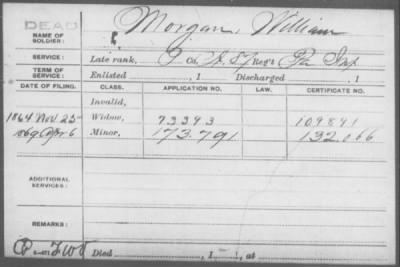 DEAD
NAME OF SOLDIER: Morgan, William
SERVICE: Late rank, P Co. , 57 Reg't Pa Inf
TERM OF SERVICE: Enlisted , 1 Discharged , 1
DATE OF FILING. CLASS. APPLICATION NO. LAW. CERTIFICATE NO.
Invalid,
1864 Nov 25 Widow, 73393 109891
1869 Apr 6 Minor, 173.791 132.066
ADDITIONAL SERVICES:
REMARKS:
Died , 1 , at